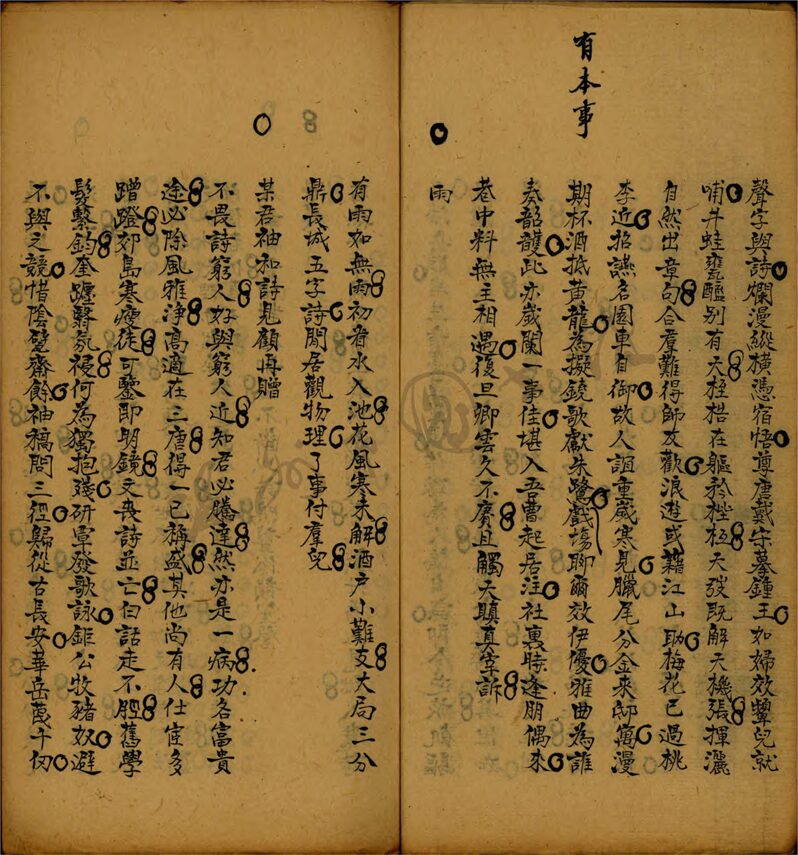 有本事
聲字與詩爛漫縱橫憑宿悟尊唐戴宋摹鍾王如婦效顰兒就
哺井蛙甕醯別有天桎梏在軀於桎梏天弢既解天機張揮灑
自然出章句合羣難得師友歡浪遊或藉江山助梅花已過桃
李近招讌名園車自御故人誼重歲寒見臘尾分金來邮萬漫
期杯酒抵黃龍為擬鐃歌獻朱鷺戲場聊爾效伊優雅曲為誰
奏韶頀此亦歲闌一事佳堪入吾曹起居注社裏時逢朋偶來
巷中料無主相遇復旦卿雲久不賡且觸天瞋真宰訴
雨
有雨如無雨初看水入池花風寒未解酒户小難支大局三分
鼎長城五字詩閒居觀物理了事付羣兒
某君袖和詩見顧再贈
不畏詩窮人好與窮人近知君必騰達然亦是一病功名富貴
途必除風雅淨高適在三唐得一已稱盛其他尚有人仕宦多
蹭蹬郊島寒瘦徒可鑒即明鏡文喪詩並亡白話走不脛舊學
髮繫鈞奎躔翳氛祲何為獨抱殘研覃發歌詠鉅公牧豬奴避
不與之競惜陰壁齋餘袖稿問三徑歸從古長安華岳萬千仞